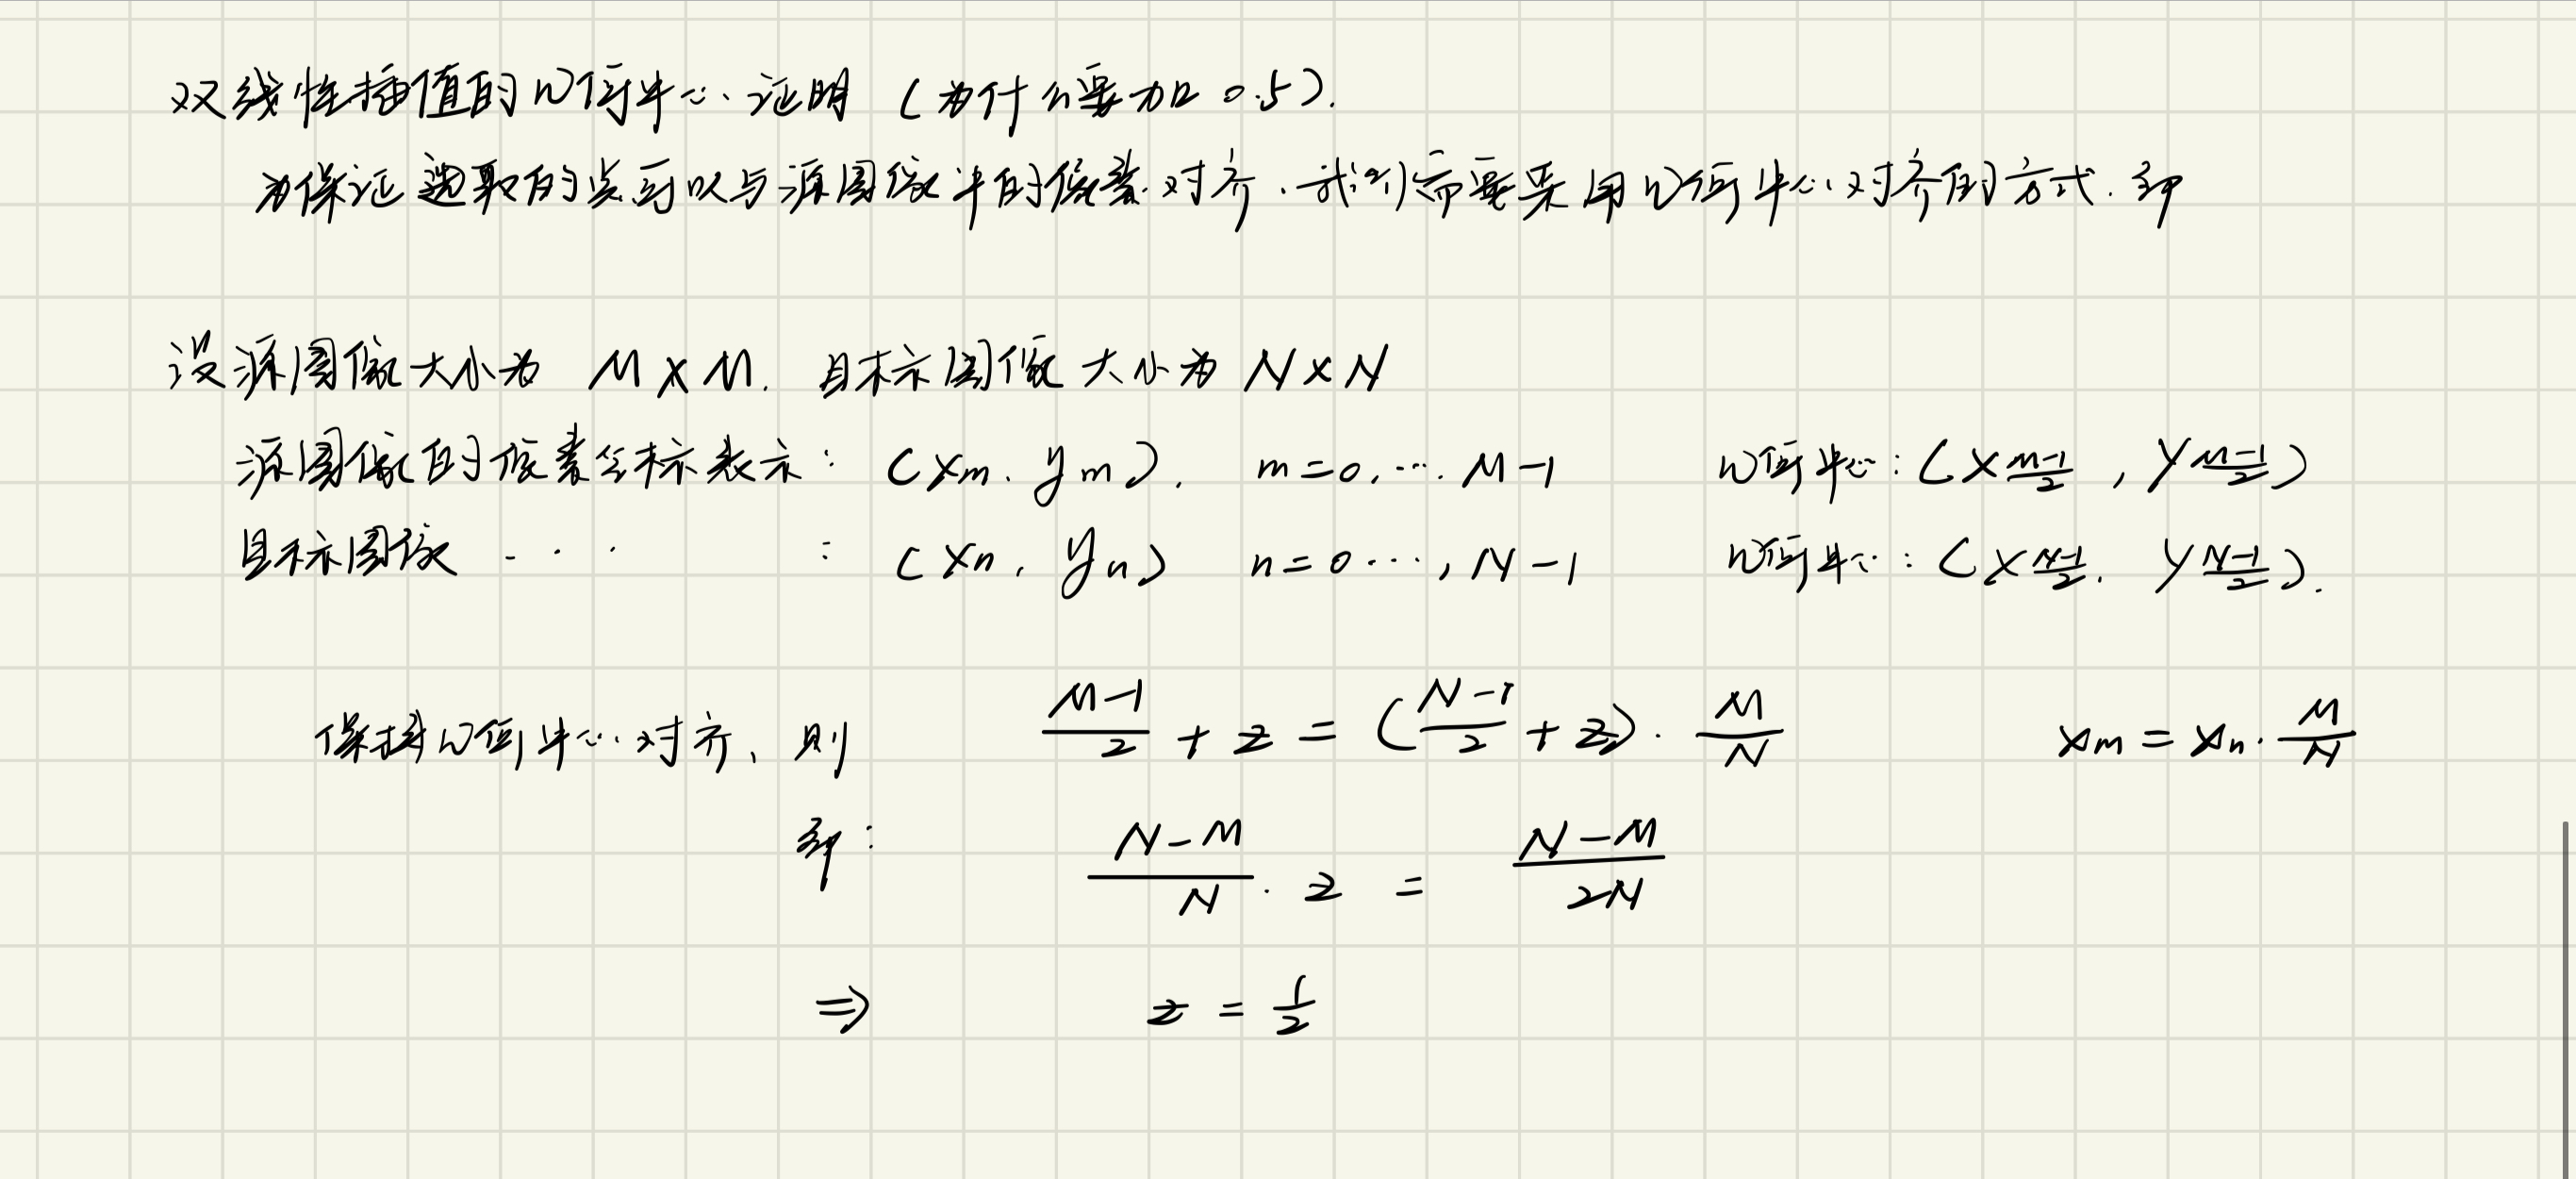 双线性插值的几何中心证明（为什么要加0.5）.
为保证选取的点可以与源图像中的像素对齐，我们需要采用几何中心对齐的方式.即
设源图像大小为 M×M. 目标图像大小为 N×N
源图像的像素坐标表示： (x_m, y_m), m=0,…. M-1 几何中心：(x_{\frac{m-1}{2}}, y_{\frac{m-1}{2}})
目标图像 · · · : (x_n, y_n) n=0…, N-1 几何中心：(x_{\frac{N-1}{2}}, y_{\frac{N-1}{2}}).
保持几何中心对齐、则 \frac{M-1}{2} + z = (\frac{N-1}{2} + z) · \frac{M}{N} x_m = x_n · \frac{M}{N}
即： \frac{N-M}{N} · z = \frac{N-M}{2N}
⇒ z = \frac{1}{2}